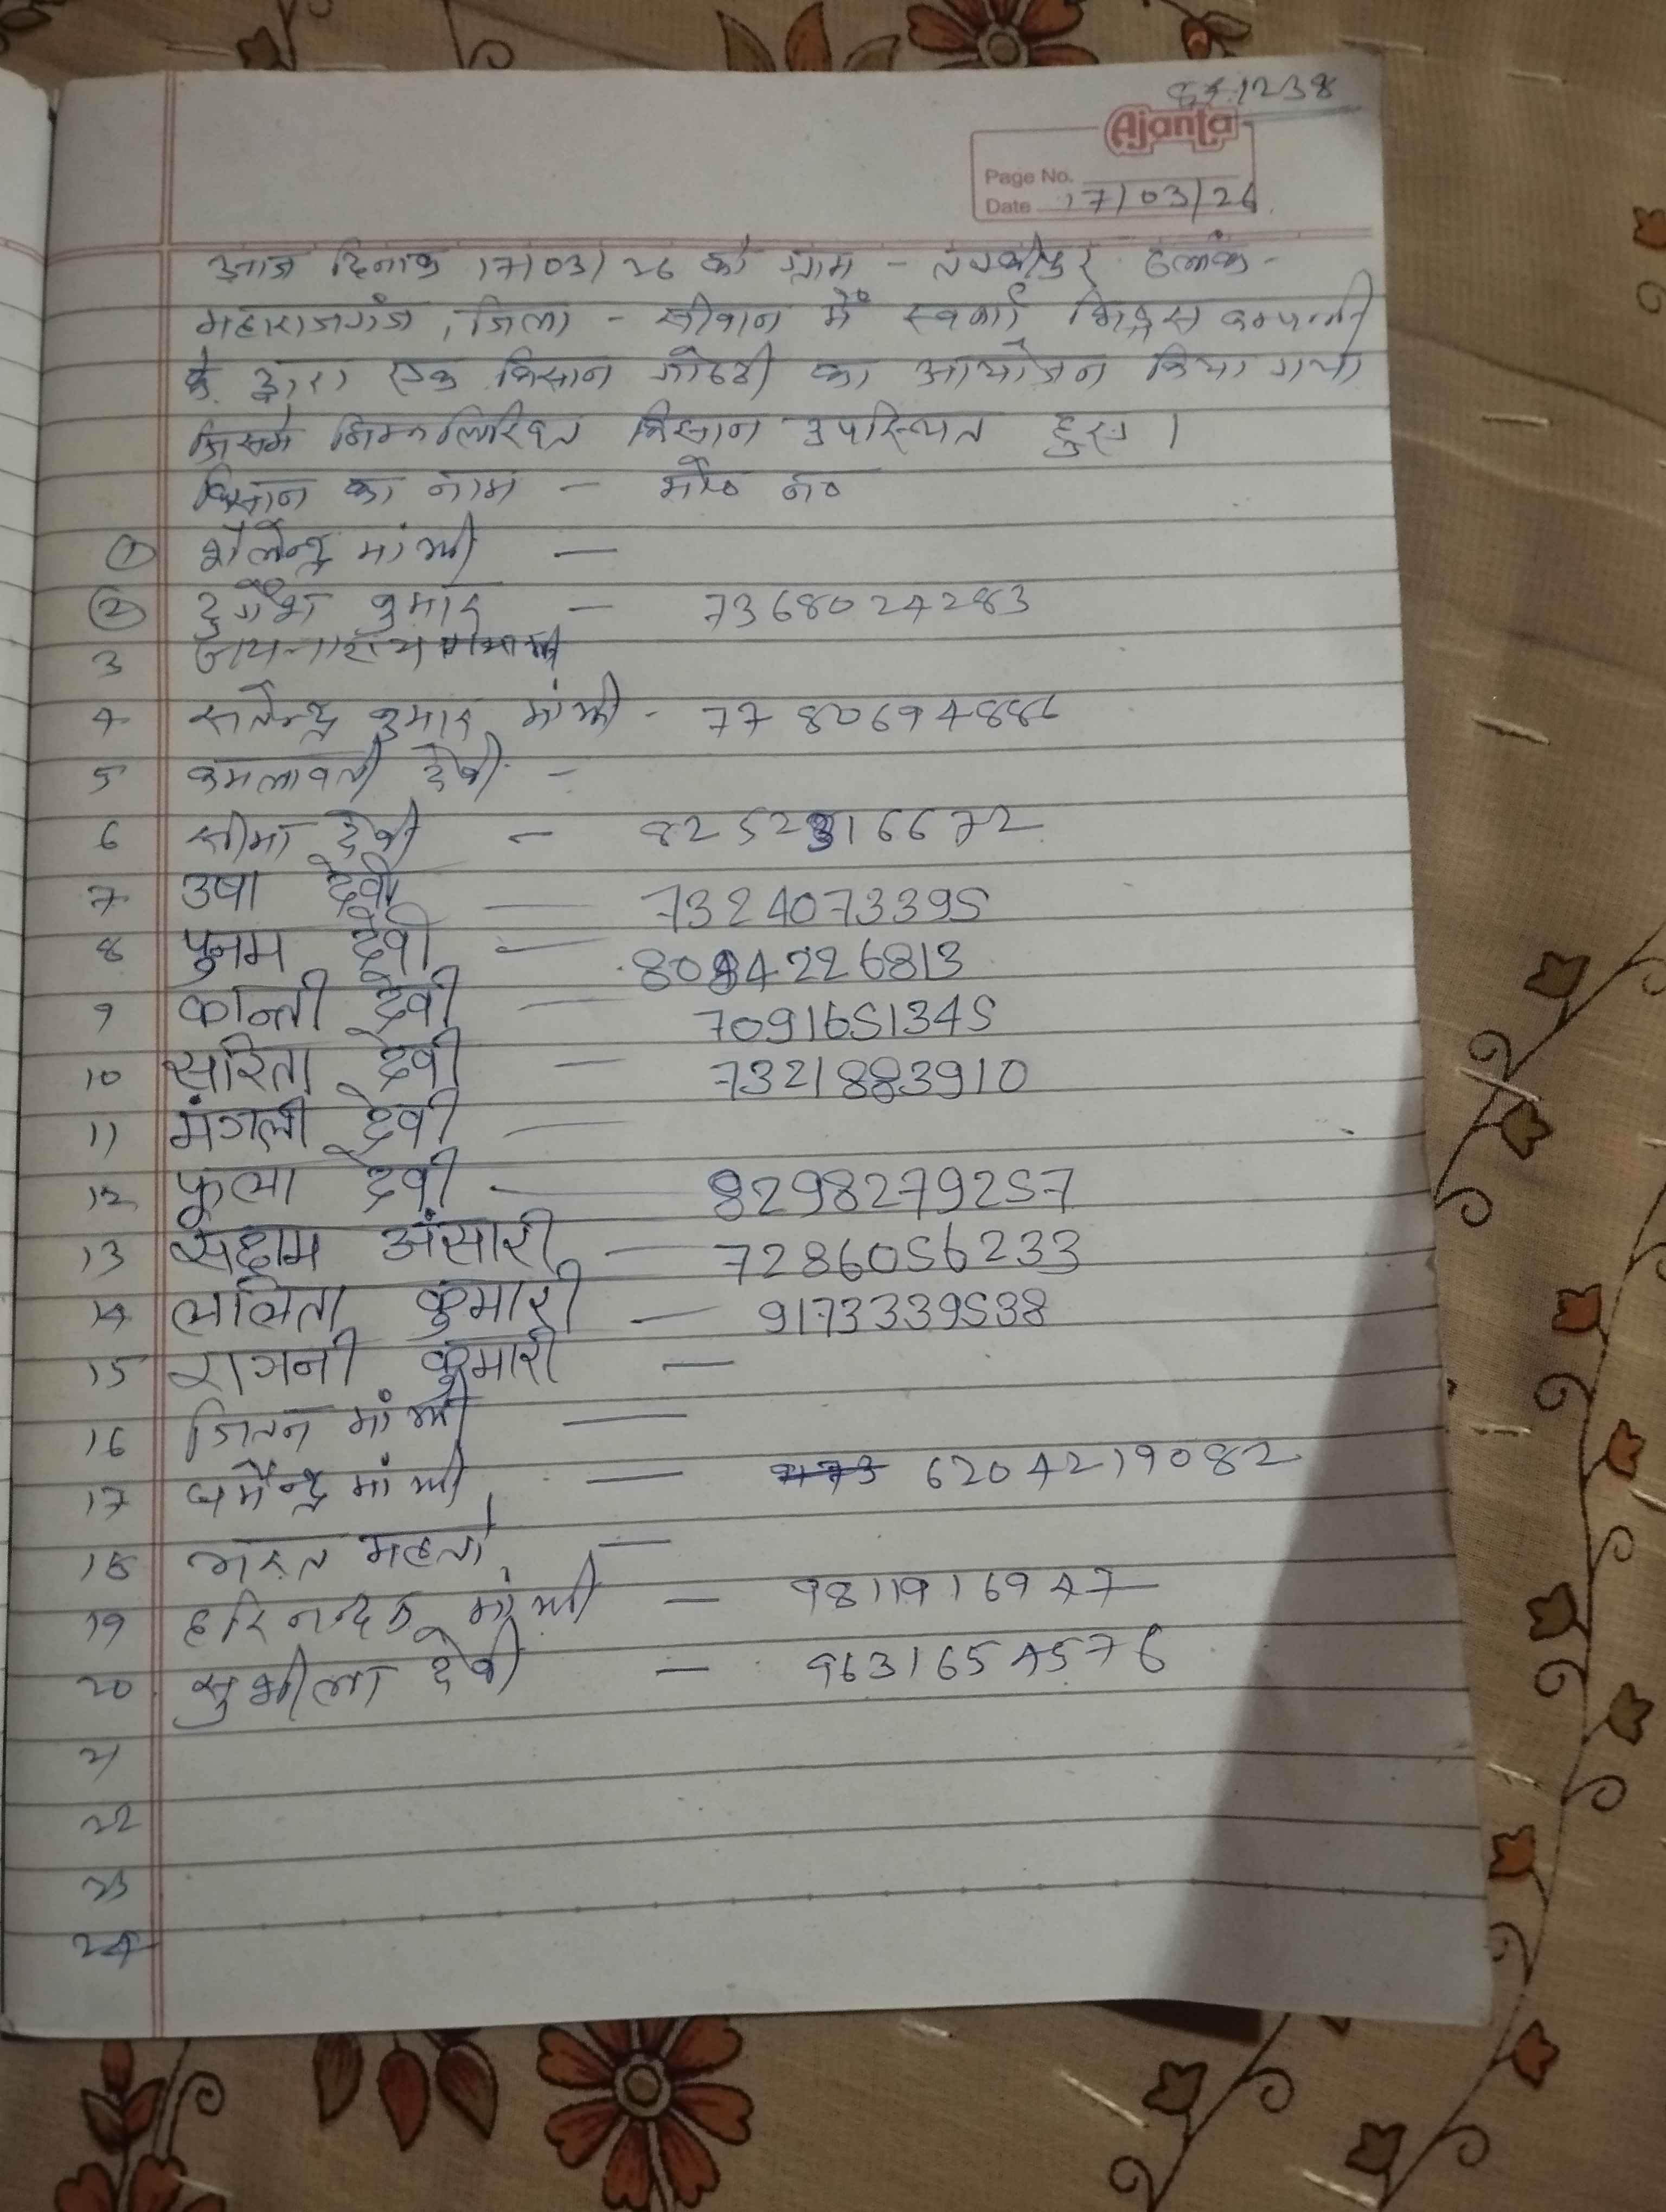 1238
Ajanta
Page No.
Date 17/03/26
आज दिनांक 17/03/26 को ग्राम - ब्लॉक -
महाराजगंज, जिला - सीवान में स्वर्णा कम्पनी
के द्वारा एक किसान गोष्ठी का आयोजन किया गया
जिसमे निम्नलिखित किसान उपस्थित हुए ।
किसान का नाम - मो० न०
① शैलेन्द्र मांझी -
② दुर्गेश कुमार - 7368024283
3 जयनारायण
4 सतेन्द्र कुमार मांझी - 7780694886
5 कमलावती देवी -
6 सीमा देवी - 8252316672
7 उषा देवी - 7324073395
8 पुनम देवी -
9 कान्ती देवी - 7091651345
10 सरिता देवी - 7321883910
11 मंगली देवी -
12 फूला देवी - 8298279257
13 सद्दाम अंसारी - 7286056233
14 ललिता कुमारी - 9173339538
15 रागनी कुमारी -
16 जितन मांझी -
17 धर्मेन्द्र मांझी - 6204219082
18 भरत महतो -
19 हरिनन्दन मांझी - 9811916947
20 सुशीला देवी - 9631654576
21
22
23
24